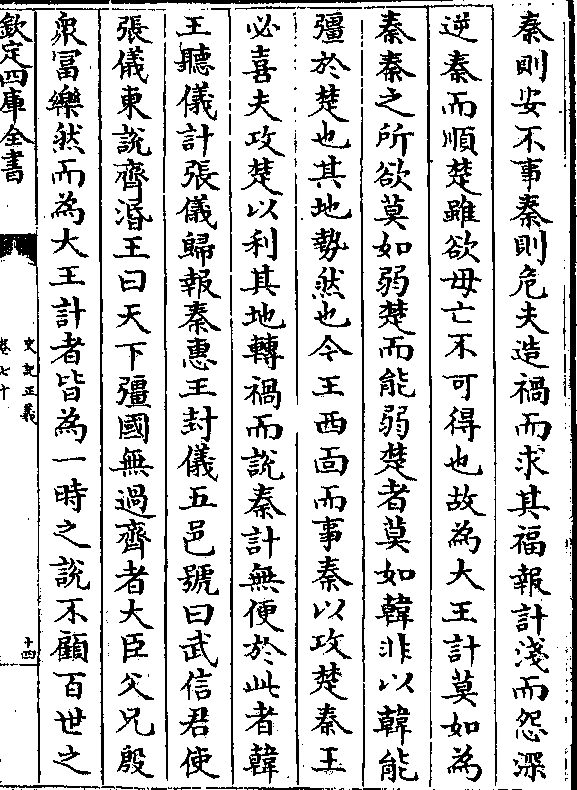 秦則安不事秦則危夫造禍而求其福報計淺而怨深
逆秦而順楚雖欲毋亡不可得也故為大王計莫如為
秦秦之所欲莫如弱楚而能弱楚者莫如韓非以韓能
彊於楚也其地勢然也今王西面而事秦以攻楚秦王
必喜夫攻楚以利其地轉禍而說秦計無便於此者韓
王聽儀計張儀歸報秦惠王封儀五邑號曰武信君使
張儀東說齊湣王曰天下彊國無過齊者大臣父兄殷
衆冨樂然而為大王計者皆為一時之說不顧百世之
欽定四庫全書
史記正義
卷七十
十四